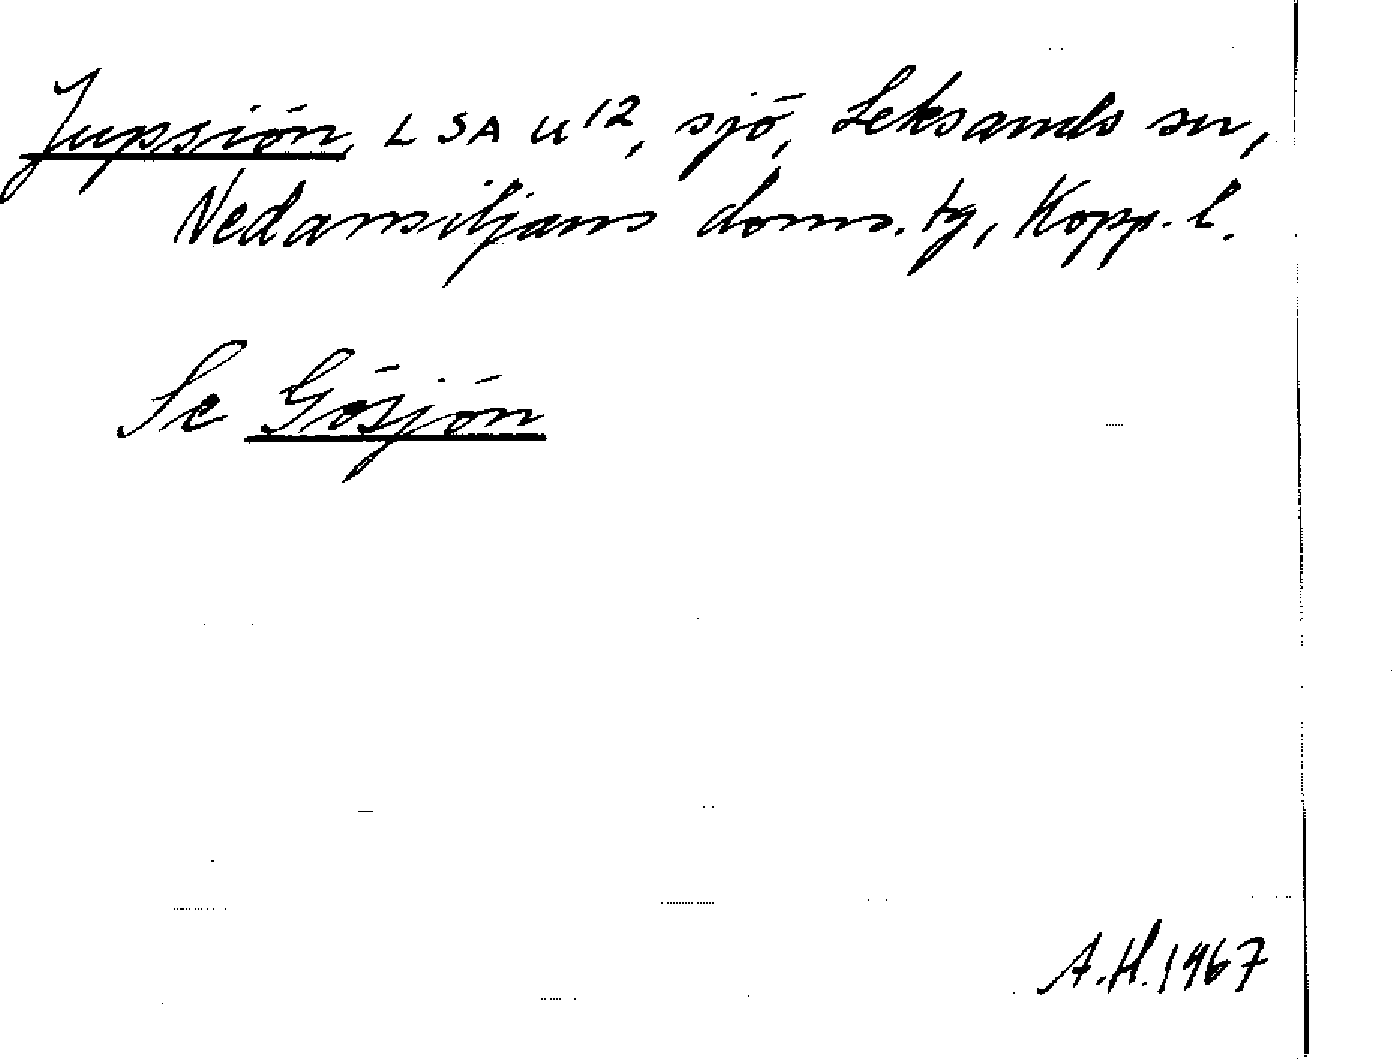 Jupsiön L SA U 12, sjö, Leksands sn,
Nedansiljans doms. tg, Kopp. l.
Se Gösjön
A.H. 1967